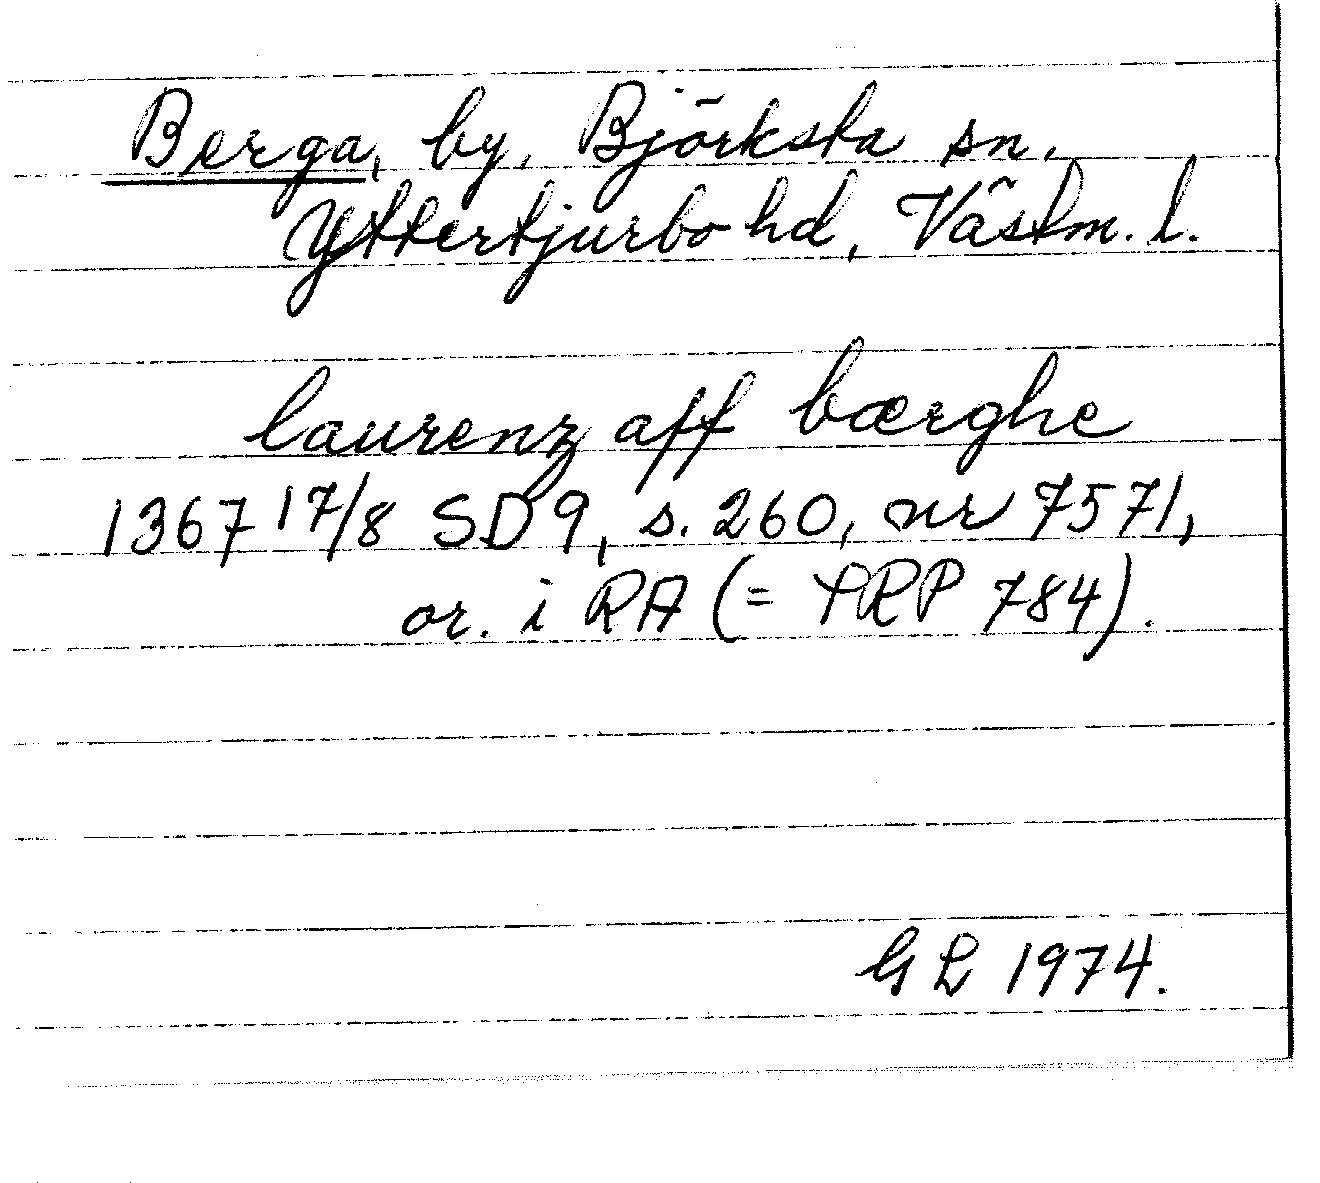 Berga, by, Björksta sn.
Yttertjurbo hd, Västm. l.
laurenz aff bærghe
1367 17/8 SD 9, s. 260, nr 7571,
or. i RA (= RAP 784).
GL 1974.